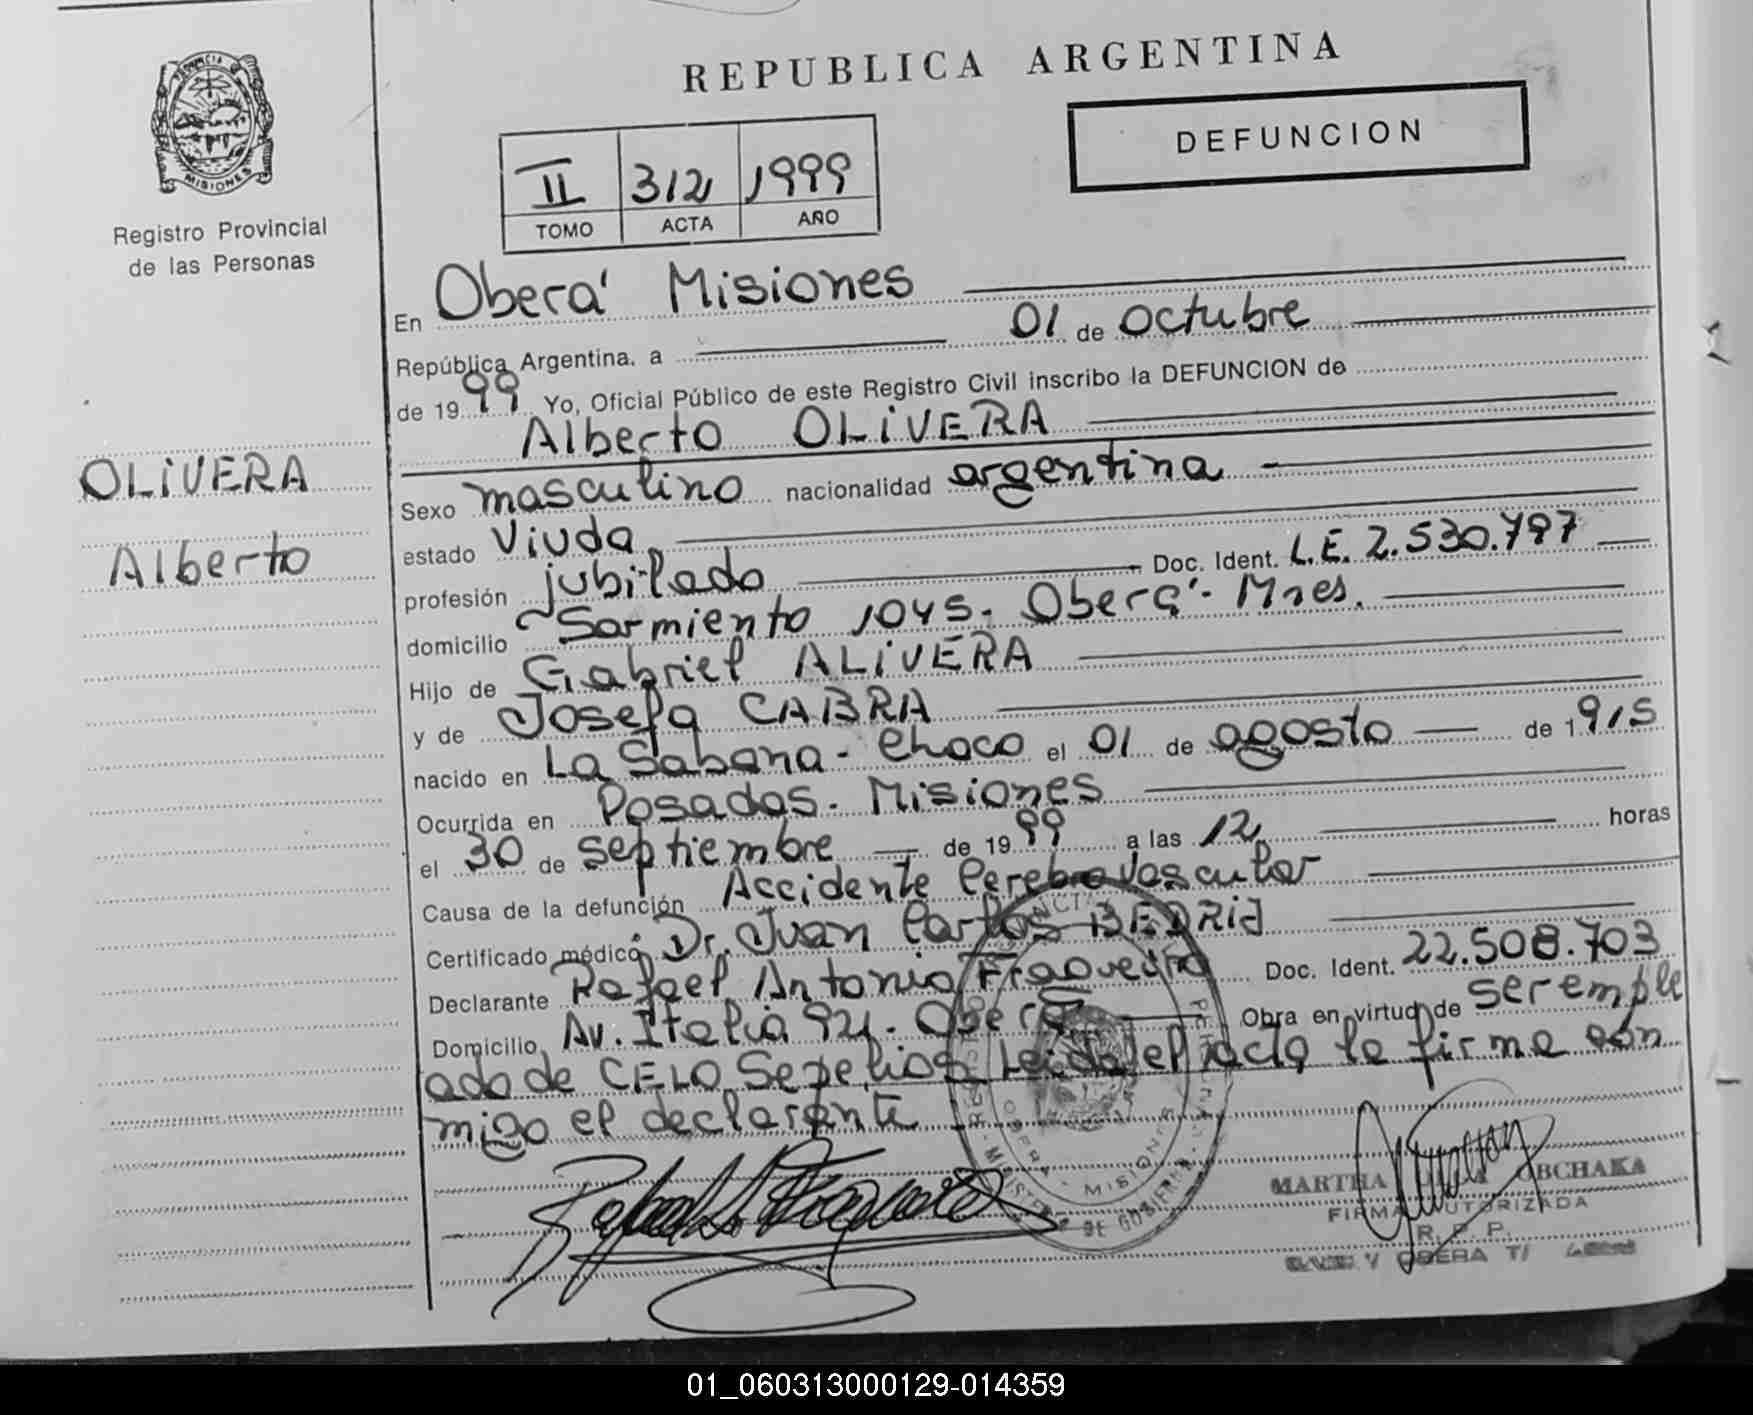 REPUBLICA ARGENTINA
PROVINCIA DE
MISIONES
Registro Provincial
de las Personas
DEFUNCION
II 312 1999
TOMO ACTA AÑO
En Oberá Misiones
República Argentina. a 01 de octubre
de 1999 Yo, Oficial Público de este Registro Civil inscribo la DEFUNCION de
Alberto OLIVERA
OLIVERA
Alberto
Sexo masculino nacionalidad argentina
estado Viudo
profesión jubilado Doc. Ident. L.E. 2.530.797
domicilio Sarmiento 1045. Oberá - Mnes.
Hijo de Gabriel ALIVERA
y de Josefa CABRA
nacido en La Sabana - Chaco el 01 de agosto de 1915
Ocurrida en Posadas - Misiones
el 30 de septiembre de 1999 a las 12 horas
Causa de la defunción Accidente Cerebro Vascular
Certificado médico Dr. Juan Carlos BEDRIJ
Declarante Rafael Antonio Doc. Ident. 22.508.703
Domicilio Av. Italia 921. Oberá Obra en virtud de ser emple
ado de CELO Sepelios Leída el acta la firma con
migo el declarante
MISIONES
MARTHA OBCHAKA
FIRMA AUTORIZADA
R. P. P.
OBERA
01_060313000129-014359